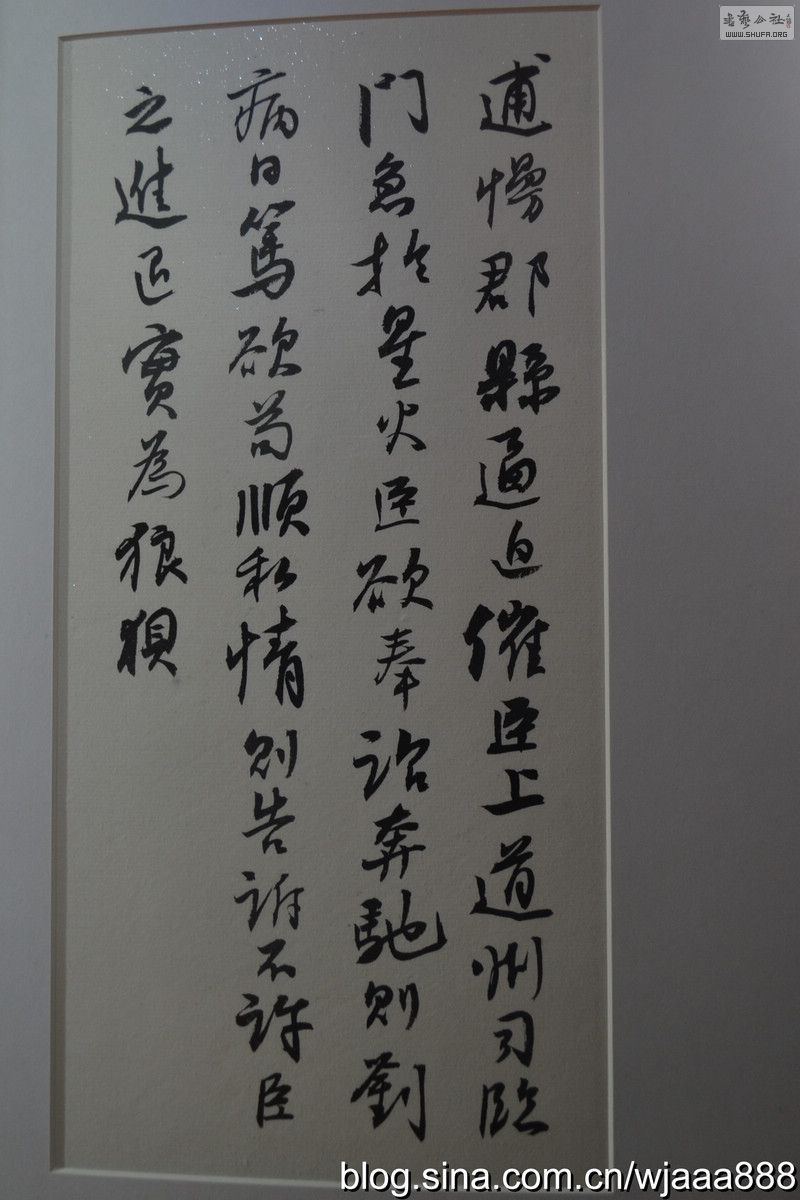 逋慢郡縣逼迫催臣上道州司臨
門急於星火臣欲奉詔奔馳則劉
病日篤欲苟順私情則告訴不許臣
之進退實為狼狽
書藝公社
WWW.SHUFA.ORG
blog.sina.com.cn/wjaaa888